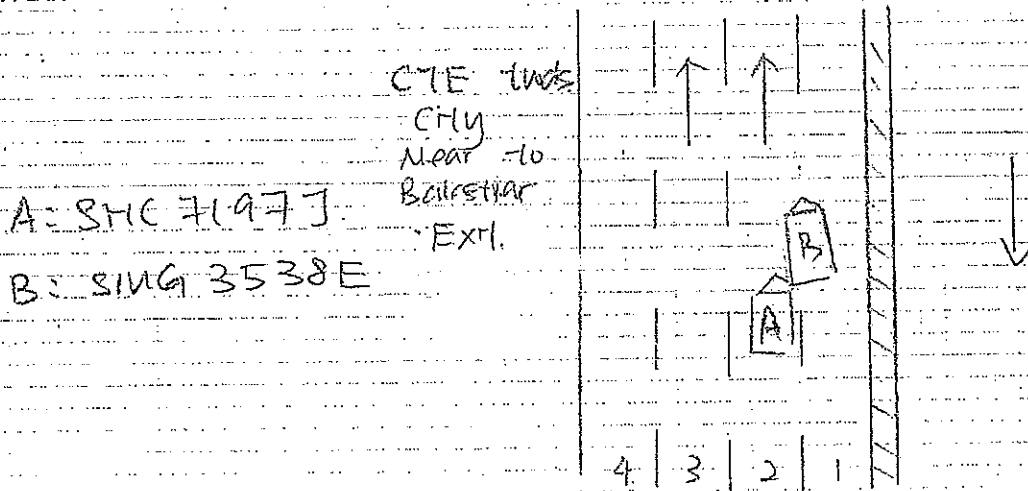 CTE twds
City
Near to
Balestiar
Exit.
A: SHC 7197J
B: SMG 3538E
B
A
4 3 2 1